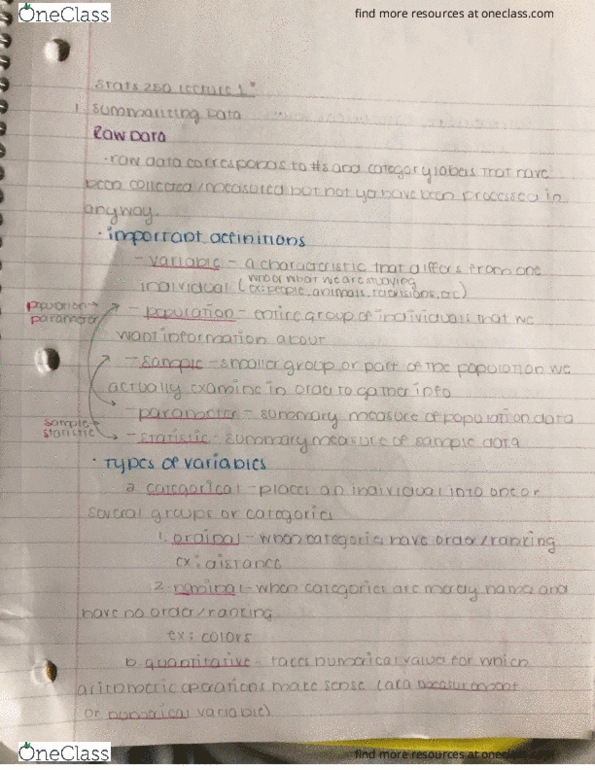 OneClass
find more resources at oneclass.com
Stats 250 Lecture 1
1. Summarizing Data
Raw Data
· raw data corresponds to #s and category labels that have
been collected/measured but not yet have been processed in
anyway.
· important definitions
- variable - a characteristic that differs from one
individual (who or what we are studying
ex: people, animals, , etc)
population →
parameter
- population - entire group of individuals that we
want information about
- sample - smaller group or part of the population we
actually examine in order to gather info
- parameter - summary measure of population data
sample →
statistic
- statistic - summary measure of sample data
· Types of variables
a. categorical - places an individual into one or
several groups or categories
1. ordinal - when categories have order/ranking
ex: distance
2. nominal - when categories are merely name and
have no order/ranking
ex: colors
b. quantitative - takes numerical value for which
arithmetic operations make sense (aka measurement
or numerical variable)
OneClass
find more resources at oneclass.com